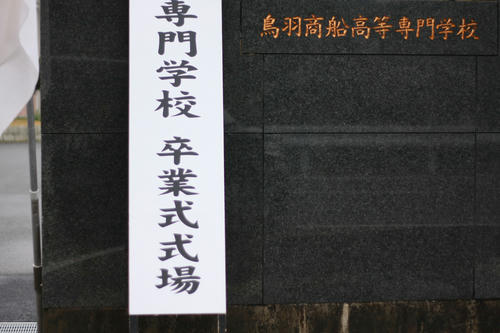 鳥羽商船高等専門学校
専門学校 卒業式式場